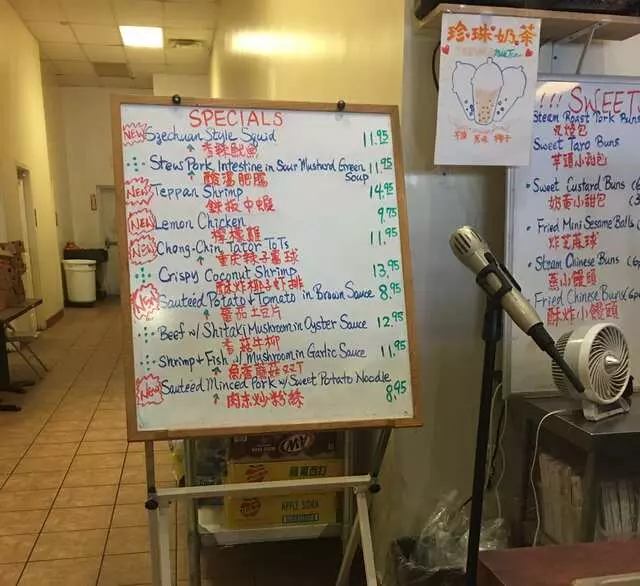 SPECIALS
NEW Szechuan Style Squid 11.95
香辣魷魚
Stew Pork Intestine in Sour Mustard Green Soup 11.95
酸湯肥腸
NEW Teppan Shrimp 14.95
鉄板中蝦
NEW Lemon Chicken 9.75
檸檬雞
NEW Chong-Chin Tator ToTs 11.95
重庆辣子薯球
Crispy Coconut Shrimp 13.95
酥炸椰子虾排
NEW Sauteed Potato + Tomato in Brown Sauce 8.95
蕃茄土豆片
Beef w/ Shitaki Mushroom in Oyster Sauce 12.95
香菇牛柳
Shrimp + Fish w/ Mushroom in Garlic Sauce 11.95
魚香蘑菇双丁
NEW Sauteed Minced Pork w/ Sweet Potato Noodle 8.95
肉末炒粉條
珍珠奶茶
!!! SWEETS
Steam Roast Pork Buns
叉燒包
Sweet Taro Buns
芋頭小甜包
Sweet Custard Buns
奶黃小甜包
Fried Mini Sesame Balls
炸芝麻球
Steam Chinese Buns
蒸小饅頭
Fried Chinese Buns
酥炸小饅頭
A&W
APPLE SODA